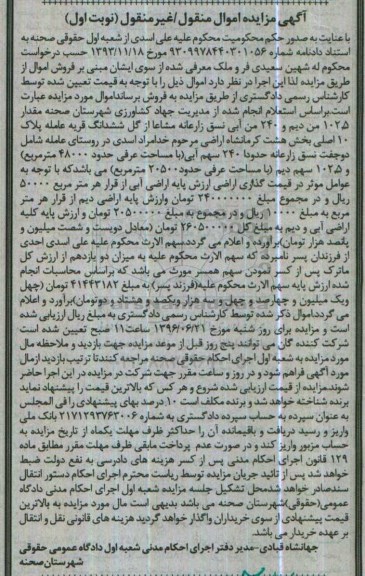 آگهی مزایده اموال منقول/غیرمنقول (نوبت اول)
با عنایت به صدور حکم محکومیت محکوم علیه علی اسدی از شعبه اول حقوقی صحنه به
استناد دادنامه شماره ۹۳۰۹۹۷۸۴۴۰۳۰۱۰۵۶ مورخ ۱۳۹۳/۱۱/۱۸ حسب درخواست
محکوم له شهین سعیدی فر و ملک معرفی شده از سوی ایشان مبنی بر فروش اموال از
طریق مزایده لذا این اجرا در نظر دارد اموال ذیل را با توجه به قیمت تعیین شده توسط
کارشناس رسمی دادگستری از طریق مزایده به فروش برساند اموال مورد مزایده عبارت
است براساس استعلام انجام شده از مدیریت جهاد کشاورزی شهرستان صحنه مقدار
۱۰۲۵ من دیم و ۲۴۰ من آبی نسق زارعانه مشاعا از کل ششدانگ قریه عامله پلاک
۱۰ اصلی بخش هشت کرمانشاه اراضی مرحوم خدامراد اسدی در روستای عامله شامل
دوجفت نسق زارعانه حدودا ۲۴۰ سهم آبی(با مساحت عرفی حدود ۴۸۰۰۰ مترمربع)
و ۱۰۲۵ سهم دیم (با مساحت عرفی حدود ۲۰۵۰۰ مترمربع) می باشد که با توجه به
عوامل موثر در قیمت گذاری اراضی ارزش پایه اراضی آبی از قرار هر متر مربع ۵۰۰۰۰
ریال و در مجموع مبلغ ۲۴۰۰۰۰۰۰۰ تومان وارزش پایه اراضی دیم از قرار هر متر
مربع به مبلغ ریال و در مجموع به مبلغ ۲۰۵۰۰۰۰۰ تومان و ارزش پایه کلیه
اراضی آبی و دیم به مبلغ کل ۲۶۰۵۰۰۰۰۰ تومان (معادل دویست و شصت میلیون و
پانصد هزار تومان) برآورده و اعلام می گردد.سهم الارث محکوم علیه علی اسدی احدی
از فرزندان پسر نامبرده که سهم الارث محکوم علیه به میزان دو یازدهم از ارزش کل
ماترک پس از کسر نمودن سهم همسر مورث می باشد که براساس محاسبات انجام
شده ارزش پایه سهم الارث محکوم علیه(فرزند پسر) به مبلغ ۴۱۴۴۳۱۸۲ تومان (چهل
ویک میلیون و چهارصد و چهل و سه هزار ویکصد و هشتاد و دوتومان)برآورد و اعلام
می گردد.اموال ذکر شده توسط کارشناس رسمی دادگستری به مبلغ ریال ارزیابی شده
است و مزایده برای روز شنبه مورخ ۱۳۹۶/۰۶/۲۱ ساعت ۱۱ صبح تعیین شده است
شرکت کننده گان می توانند پنج روز قبل از موعد مزایده جهت بازدید و ملاحظه مال
مورد مزایده به شعبه اول اجرای احکام حقوقی صحنه مراجعه کنند تا ترتیب بازدید از مال
مورد آگهی فراهم شود و در روز و ساعت مقرر جهت شرکت در مزایده در این اجرا حاضر
شوند.مزایده از قیمت ارزیابی شده شروع و هر کس که بالاترین قیمت را پیشنهاد نماید
برنده شناخته خواهد شد و برنده مکلف است ۱۰ درصد بهای پیشنهادی را فی المجلس
به عنوان سپرده به حساب سپرده دادگستری به شماره ۲۱۷۱۲۹۳۷۶۳۰۰۶ بانک ملی
واریز و رسید دریافت و باقیمانده آن را حداکثر ظرف مهلت یکماه از تاریخ مزایده به
حساب مزبور واریز کند و در صورت عدم پرداخت مابقی ظرف مهلت مقرر مطابق ماده
۱۲۹ قانون اجرای احکام مدنی پس از کسر هزینه های دادرسی به نفع دولت ضبط
خواهد شد پس از تائید جریان مزایده توسط ریاست محترم اجرای احکام دستور انتقال
سند صادر خواهد شد محل تشکیل جلسه مزایده شعبه اول اجرای احکام مدنی دادگاه
عمومی(حقوقی) شهرستان صحنه می باشد بدیهی است مال مورد مزایده به بالاترین
قیمت پیشنهادی از سوی خریداران واگذار خواهد گردید هزینه های قانونی نقل و انتقال
بر عهده خریدار می باشد.
جهانشاه قبادی-مدیر دفتر اجرای احکام مدنی شعبه اول دادگاه عمومی حقوقی
شهرستان صحنه